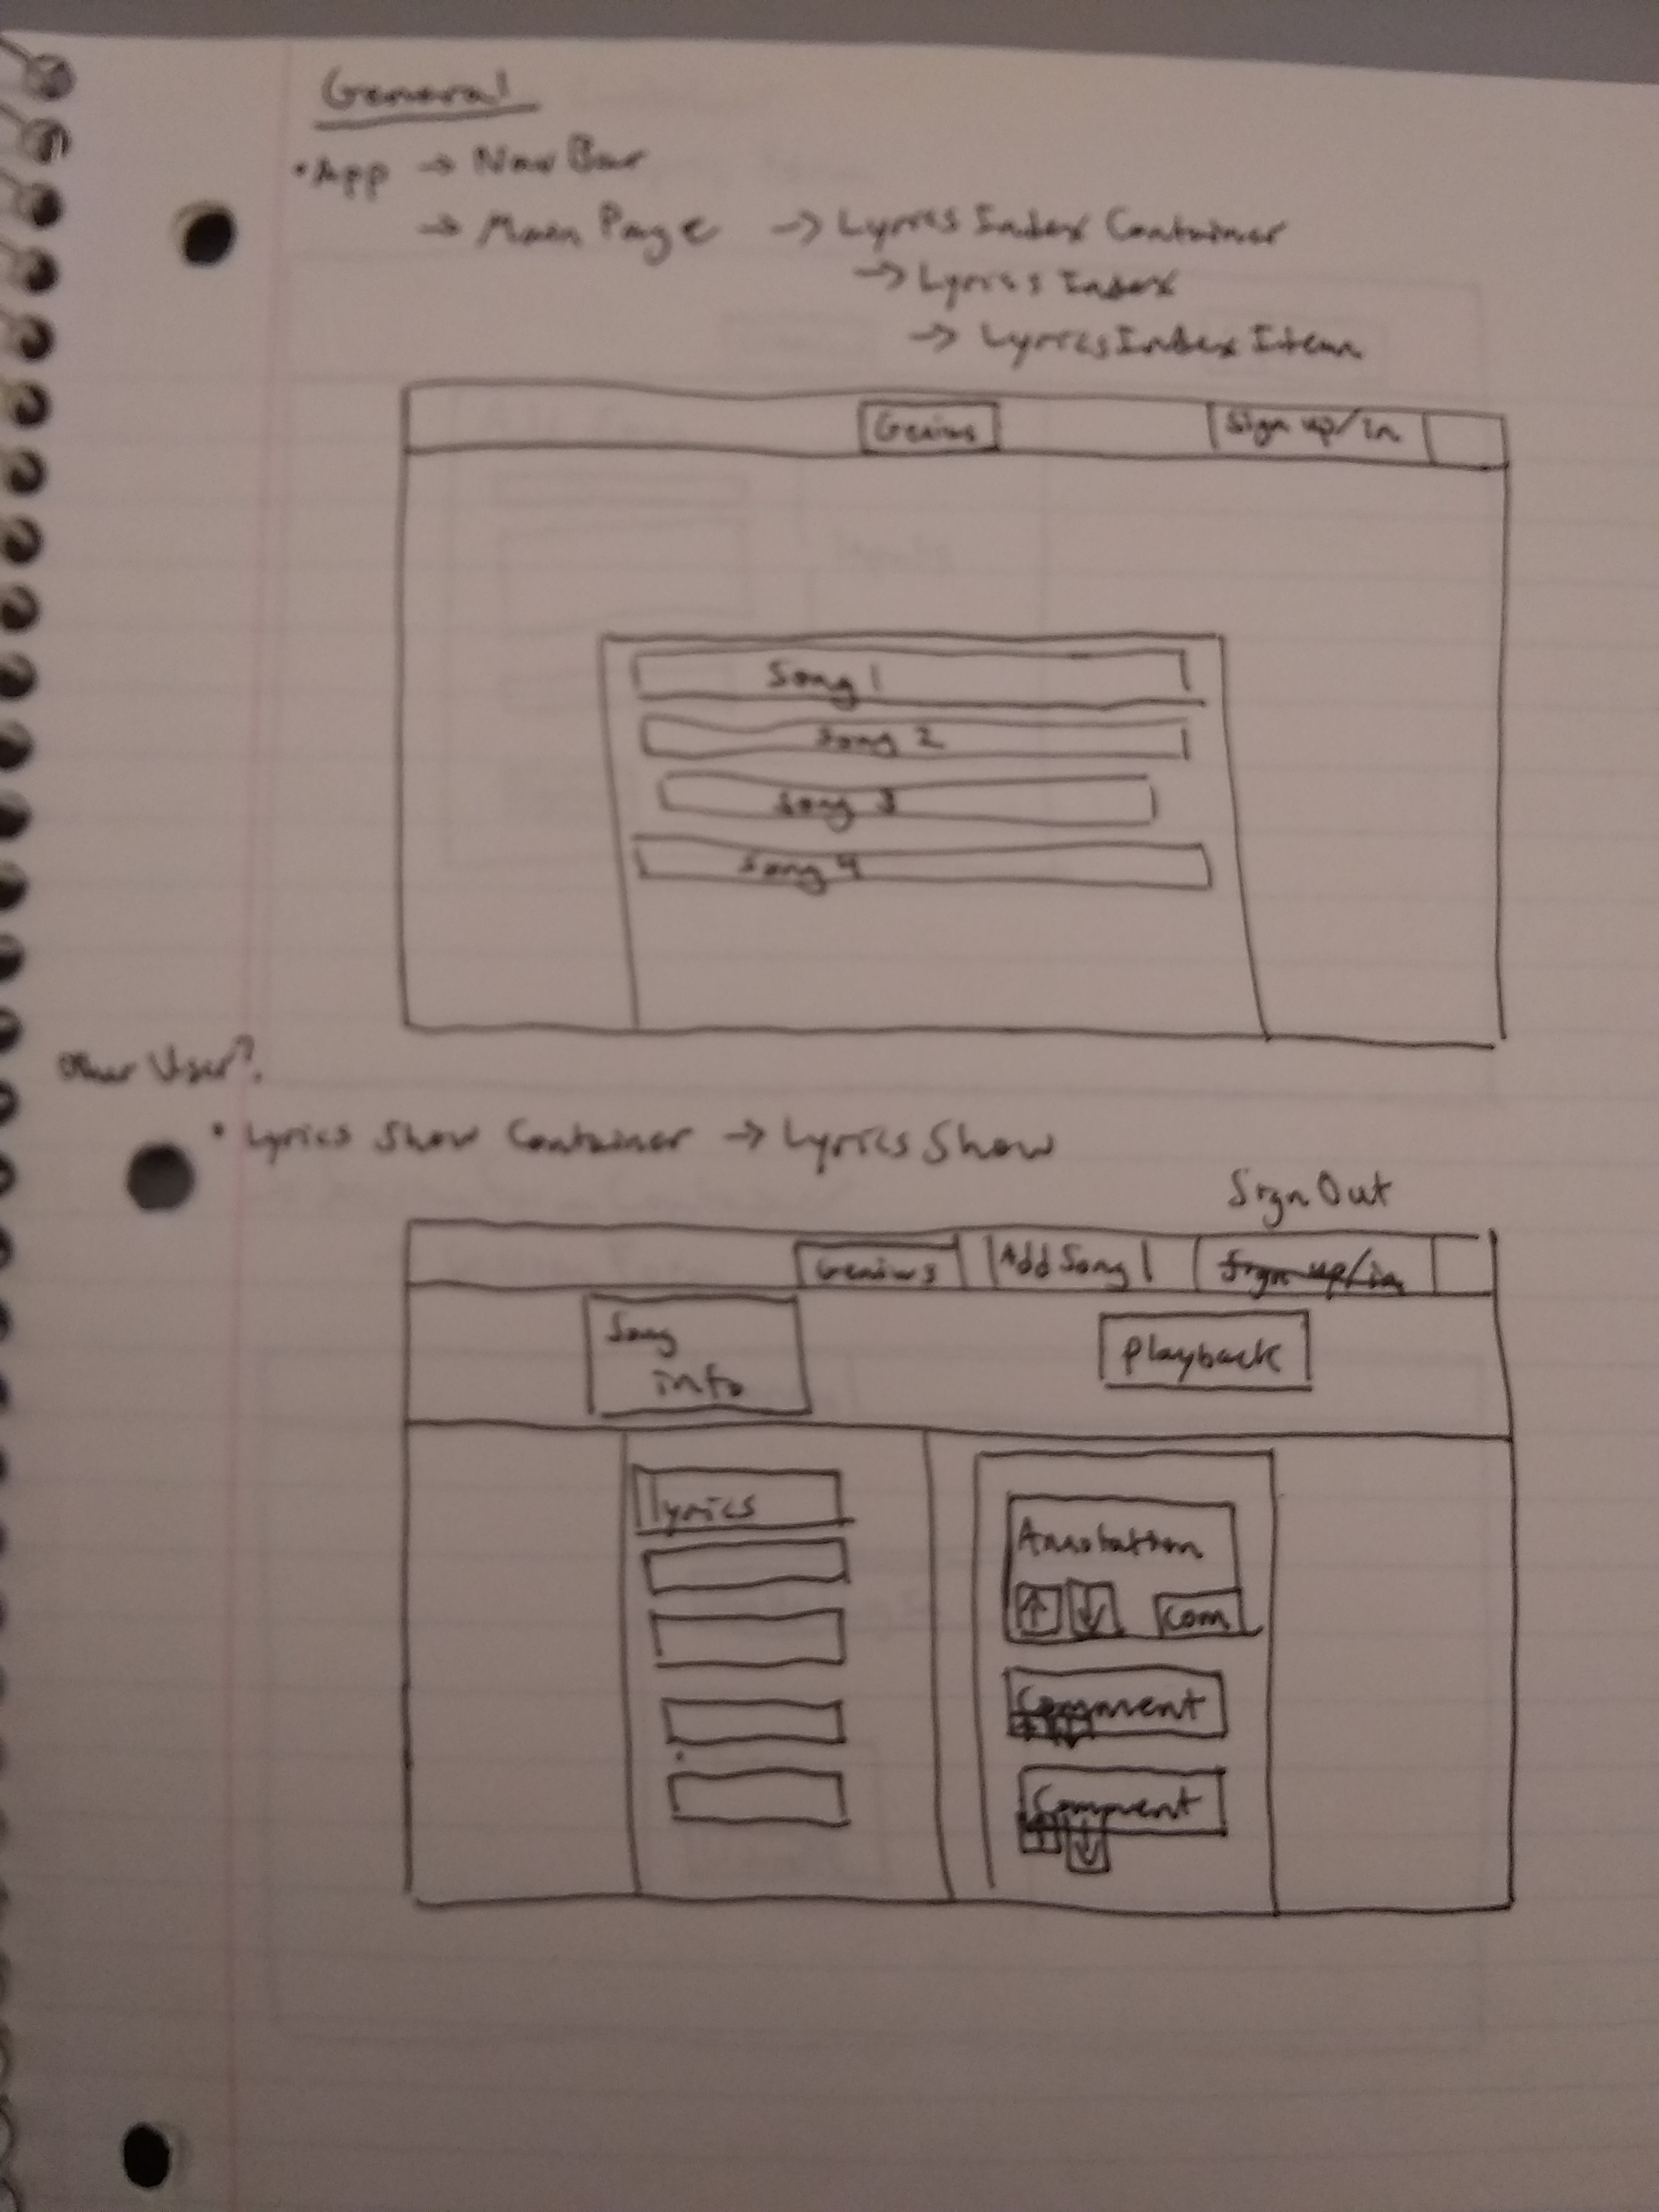 General
• App → Nav Bar
→ Main Page → Lyrics Index Container
→ Lyrics Index
→ Lyrics Index Item
Genius Sign up/in
Song 1
Song 2
Song 3
Song 4
Other User?
• Lyrics Show Container → Lyrics Show
Sign Out
Genius Add Song Sign up/in
Song
info
Playback
lyrics
Annotation
↑ ↓ Com
Comment
↑ ↓
Comment
↑ ↓